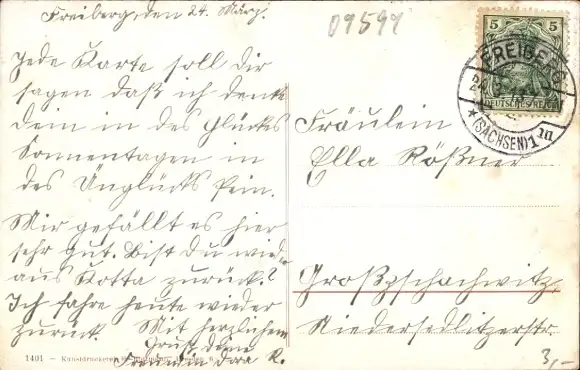 Freiberg, den 24. März.
09594
Jede Karte soll dir
sagen daß ich denke
dein in des Glückes
Sonnentagen in
des Unglücks Pein.
Mir gefällt es hier
sehr gut. Bist du wieder
aus Kotta zurück?
Ich fahre heute wieder
zurück. Mit herzlichem
Gruß deine
Freundin Dora K.
1491 – Kunstdruckerei
5 5
DEUTSCHES REICH
FREIBERG
* (SACHSEN) 1
Fräulein
Ella Rößner
Großzschachwitz
Niedersedlitzerstr.
3,-